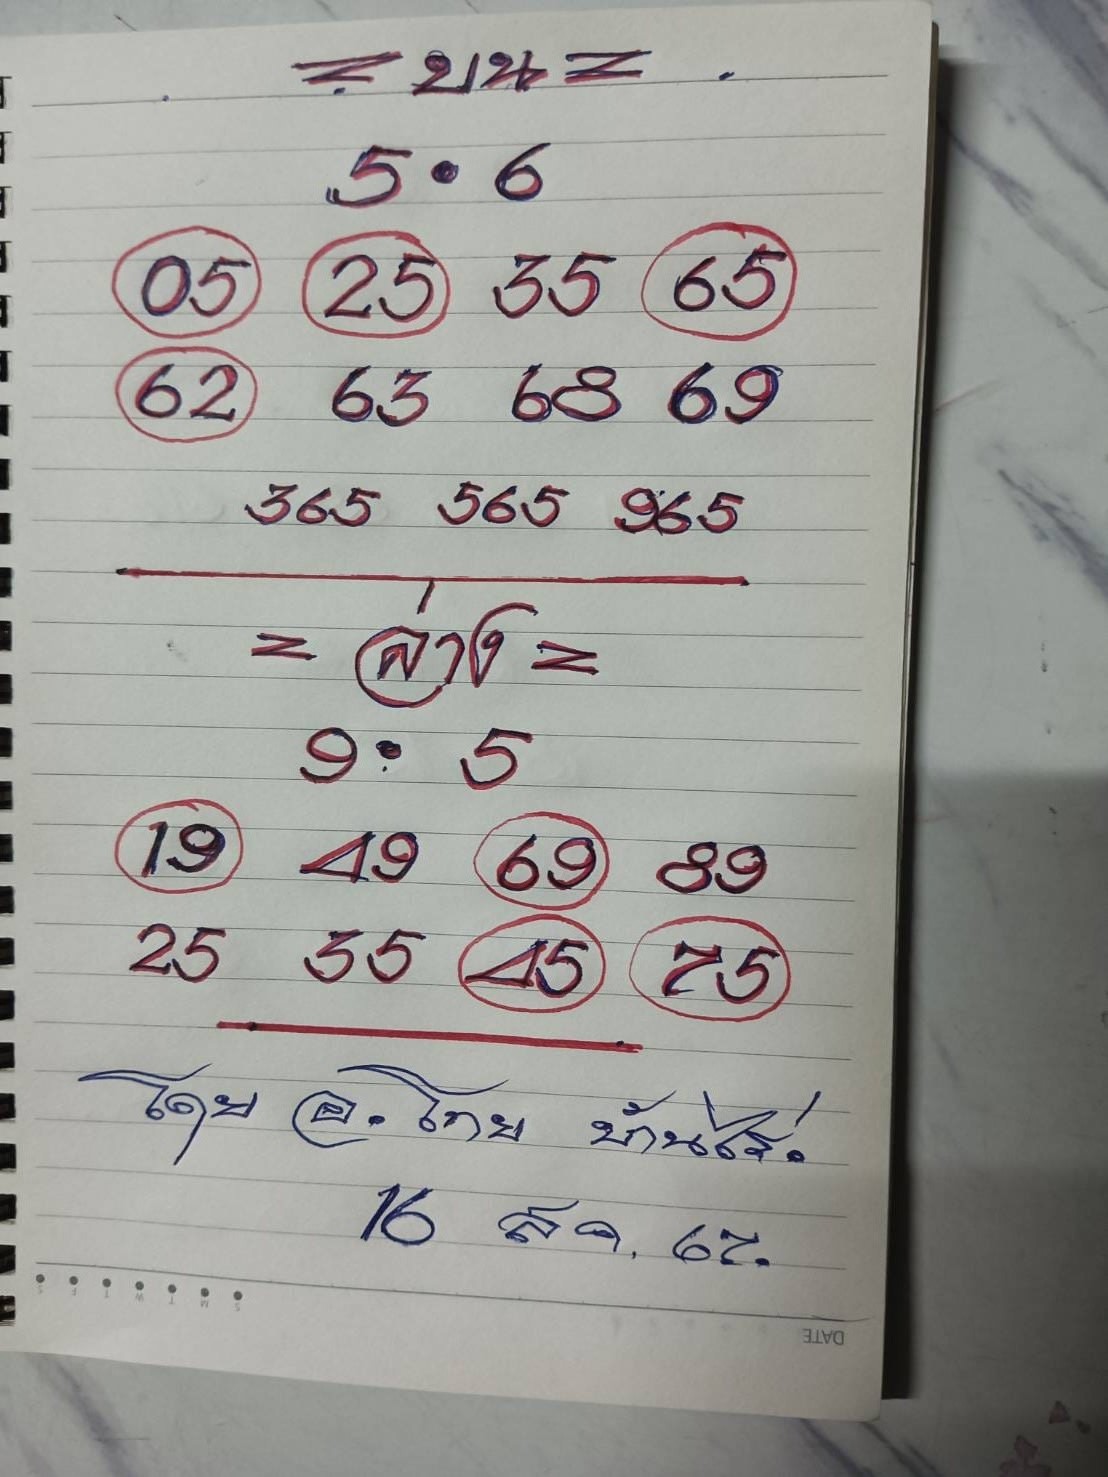 = บน =
5 • 6
05 25 35 65
62 63 68 69
365 565 965
= ล่าง =
9 • 5
19 49 69 89
25 35 45 75
โดย อ. โทย บ้านไร่.
16 ส ค. 67.
S F T W T M S
DATE